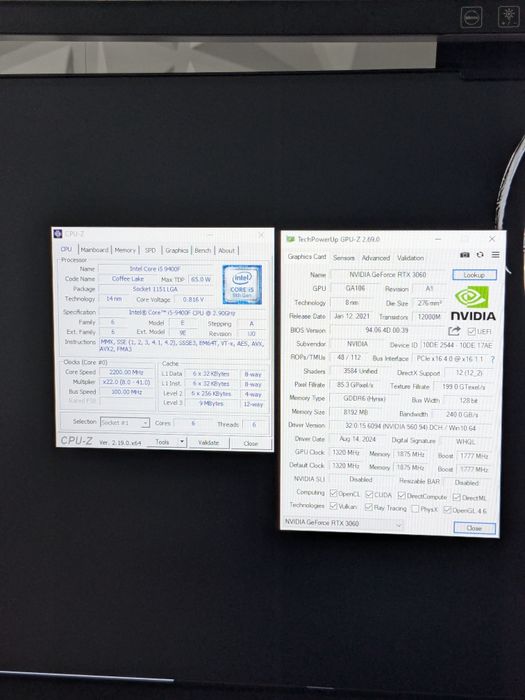 CPU-Z
CPU Mainboard Memory SPD Graphics Bench About
Processor
Name Intel Core i5 9400F
Code Name Coffee Lake Max TDP 65.0 W
Package Socket 1151 LGA
Technology 14 nm Core Voltage 0.816 V
intel
CORE i5
9th Gen
Specification Intel® Core™ i5-9400F CPU @ 2.90GHz
Family 6 Model E Stepping A
Ext. Family 6 Ext. Model 9E Revision U0
Instructions MMX, SSE (1, 2, 3, 4.1, 4.2), SSSE3, EM64T, VT-x, AES, AVX, AVX2, FMA3
Clocks (Core #0)
Core Speed 2200.00 MHz
Multiplier x22.0 (8.0 - 41.0)
Bus Speed 100.00 MHz
Rated FSB
Cache
L1 Data 6 x 32 KBytes 8-way
L1 Inst. 6 x 32 KBytes 8-way
Level 2 6 x 256 KBytes 4-way
Level 3 9 MBytes 12-way
Selection Socket #1 Cores 6 Threads 6
CPU-Z Ver. 2.19.0.x64 Tools Validate Close
TechPowerUp GPU-Z 2.69.0
Graphics Card Sensors Advanced Validation
Name NVIDIA GeForce RTX 3060 Lookup
GPU GA106 Revision A1
Technology 8 nm Die Size 276 mm²
Release Date Jan 12, 2021 Transistors 12000M
NVIDIA
BIOS Version 94.06.4D.00.39 UEFI
Subvendor NVIDIA Device ID 10DE 2544 - 10DE 17AE
ROPs/TMUs 48 / 112 Bus Interface PCIe x16 4.0 @ x16 1.1 ?
Shaders 3584 Unified DirectX Support 12 (12_2)
Pixel Fillrate 85.3 GPixel/s Texture Fillrate 199.0 GTexel/s
Memory Type GDDR6 (Hynix) Bus Width 128 bit
Memory Size 8192 MB Bandwidth 240.0 GB/s
Driver Version 32.0.15.6094 (NVIDIA 560.94) DCH / Win10 64
Driver Date Aug 14, 2024 Digital Signature WHQL
GPU Clock 1320 MHz Memory 1875 MHz Boost 1777 MHz
Default Clock 1320 MHz Memory 1875 MHz Boost 1777 MHz
NVIDIA SLI Disabled Resizable BAR Disabled
Computing OpenCL CUDA DirectCompute DirectML
Technologies Vulkan Ray Tracing PhysX OpenGL 4.6
NVIDIA GeForce RTX 3060 Close